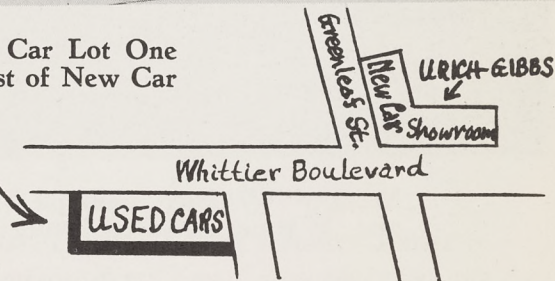 Car Lot One
st of New Car
Greenleaf St.
New Car
Showroom
URICH-GIBBS
Whittier Boulevard
USED CARS